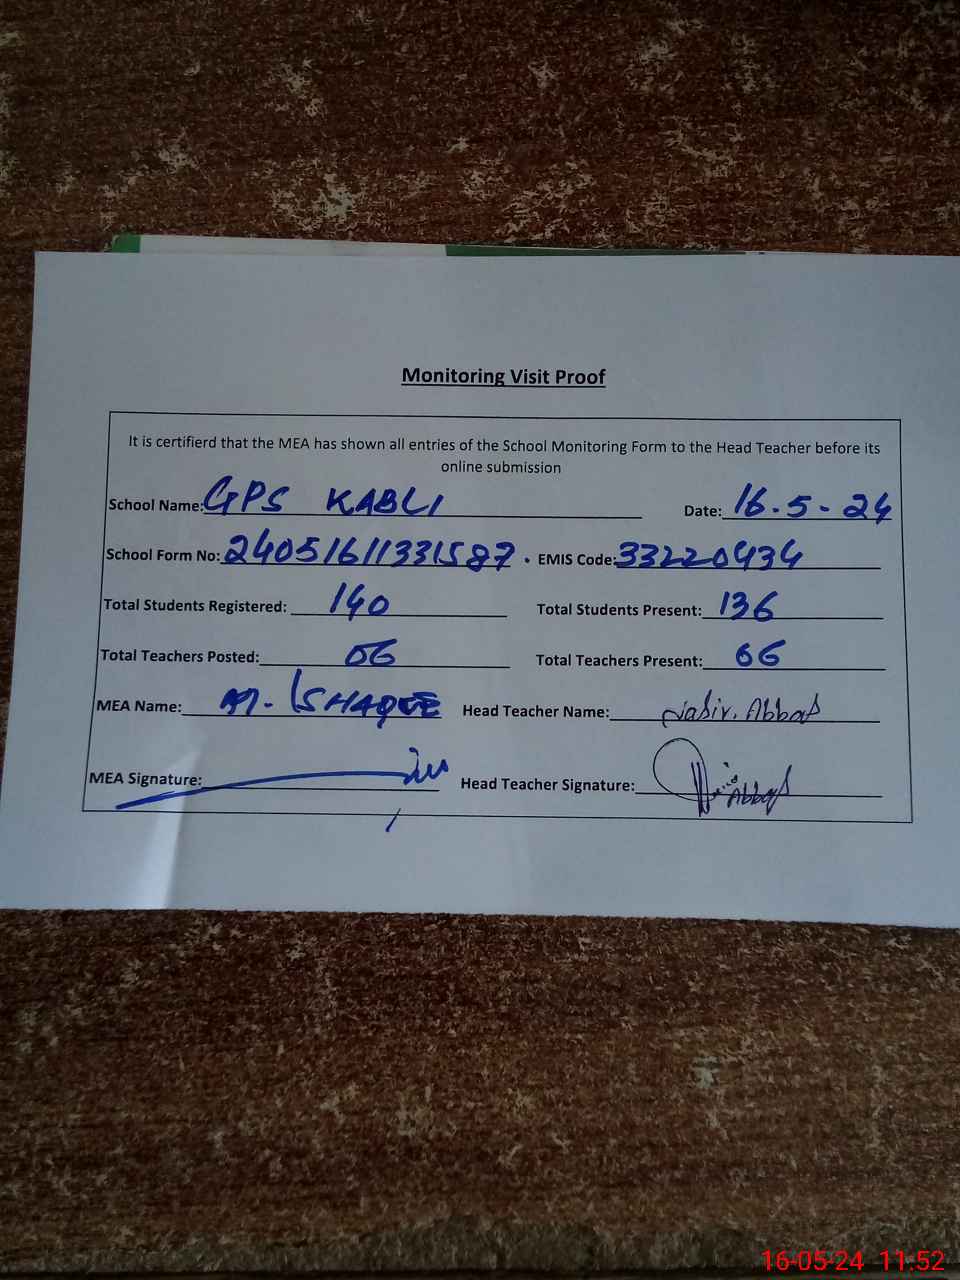 Monitoring Visit Proof
It is certifierd that the MEA has shown all entries of the School Monitoring Form to the Head Teacher before its
online submission
School Name: GPS KABLI Date: 16.5-24
School Form No: 24051611331587. EMIS Code: 33220434
Total Students Registered: 140 Total Students Present: 136
Total Teachers Posted: 06 Total Teachers Present: 06
MEA Name: M. ISHAQUE Head Teacher Name: Nasir. Abbas
MEA Signature: Head Teacher Signature: Abbas
16-05-24 11:52